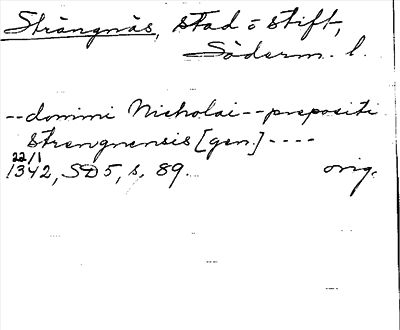 Strängnäs, stad o stift,
Söderm. l.
--domini Nicholai--prepositi
Strengnensis [gen.]----
22/1
1342, SD5, s. 89. orig.